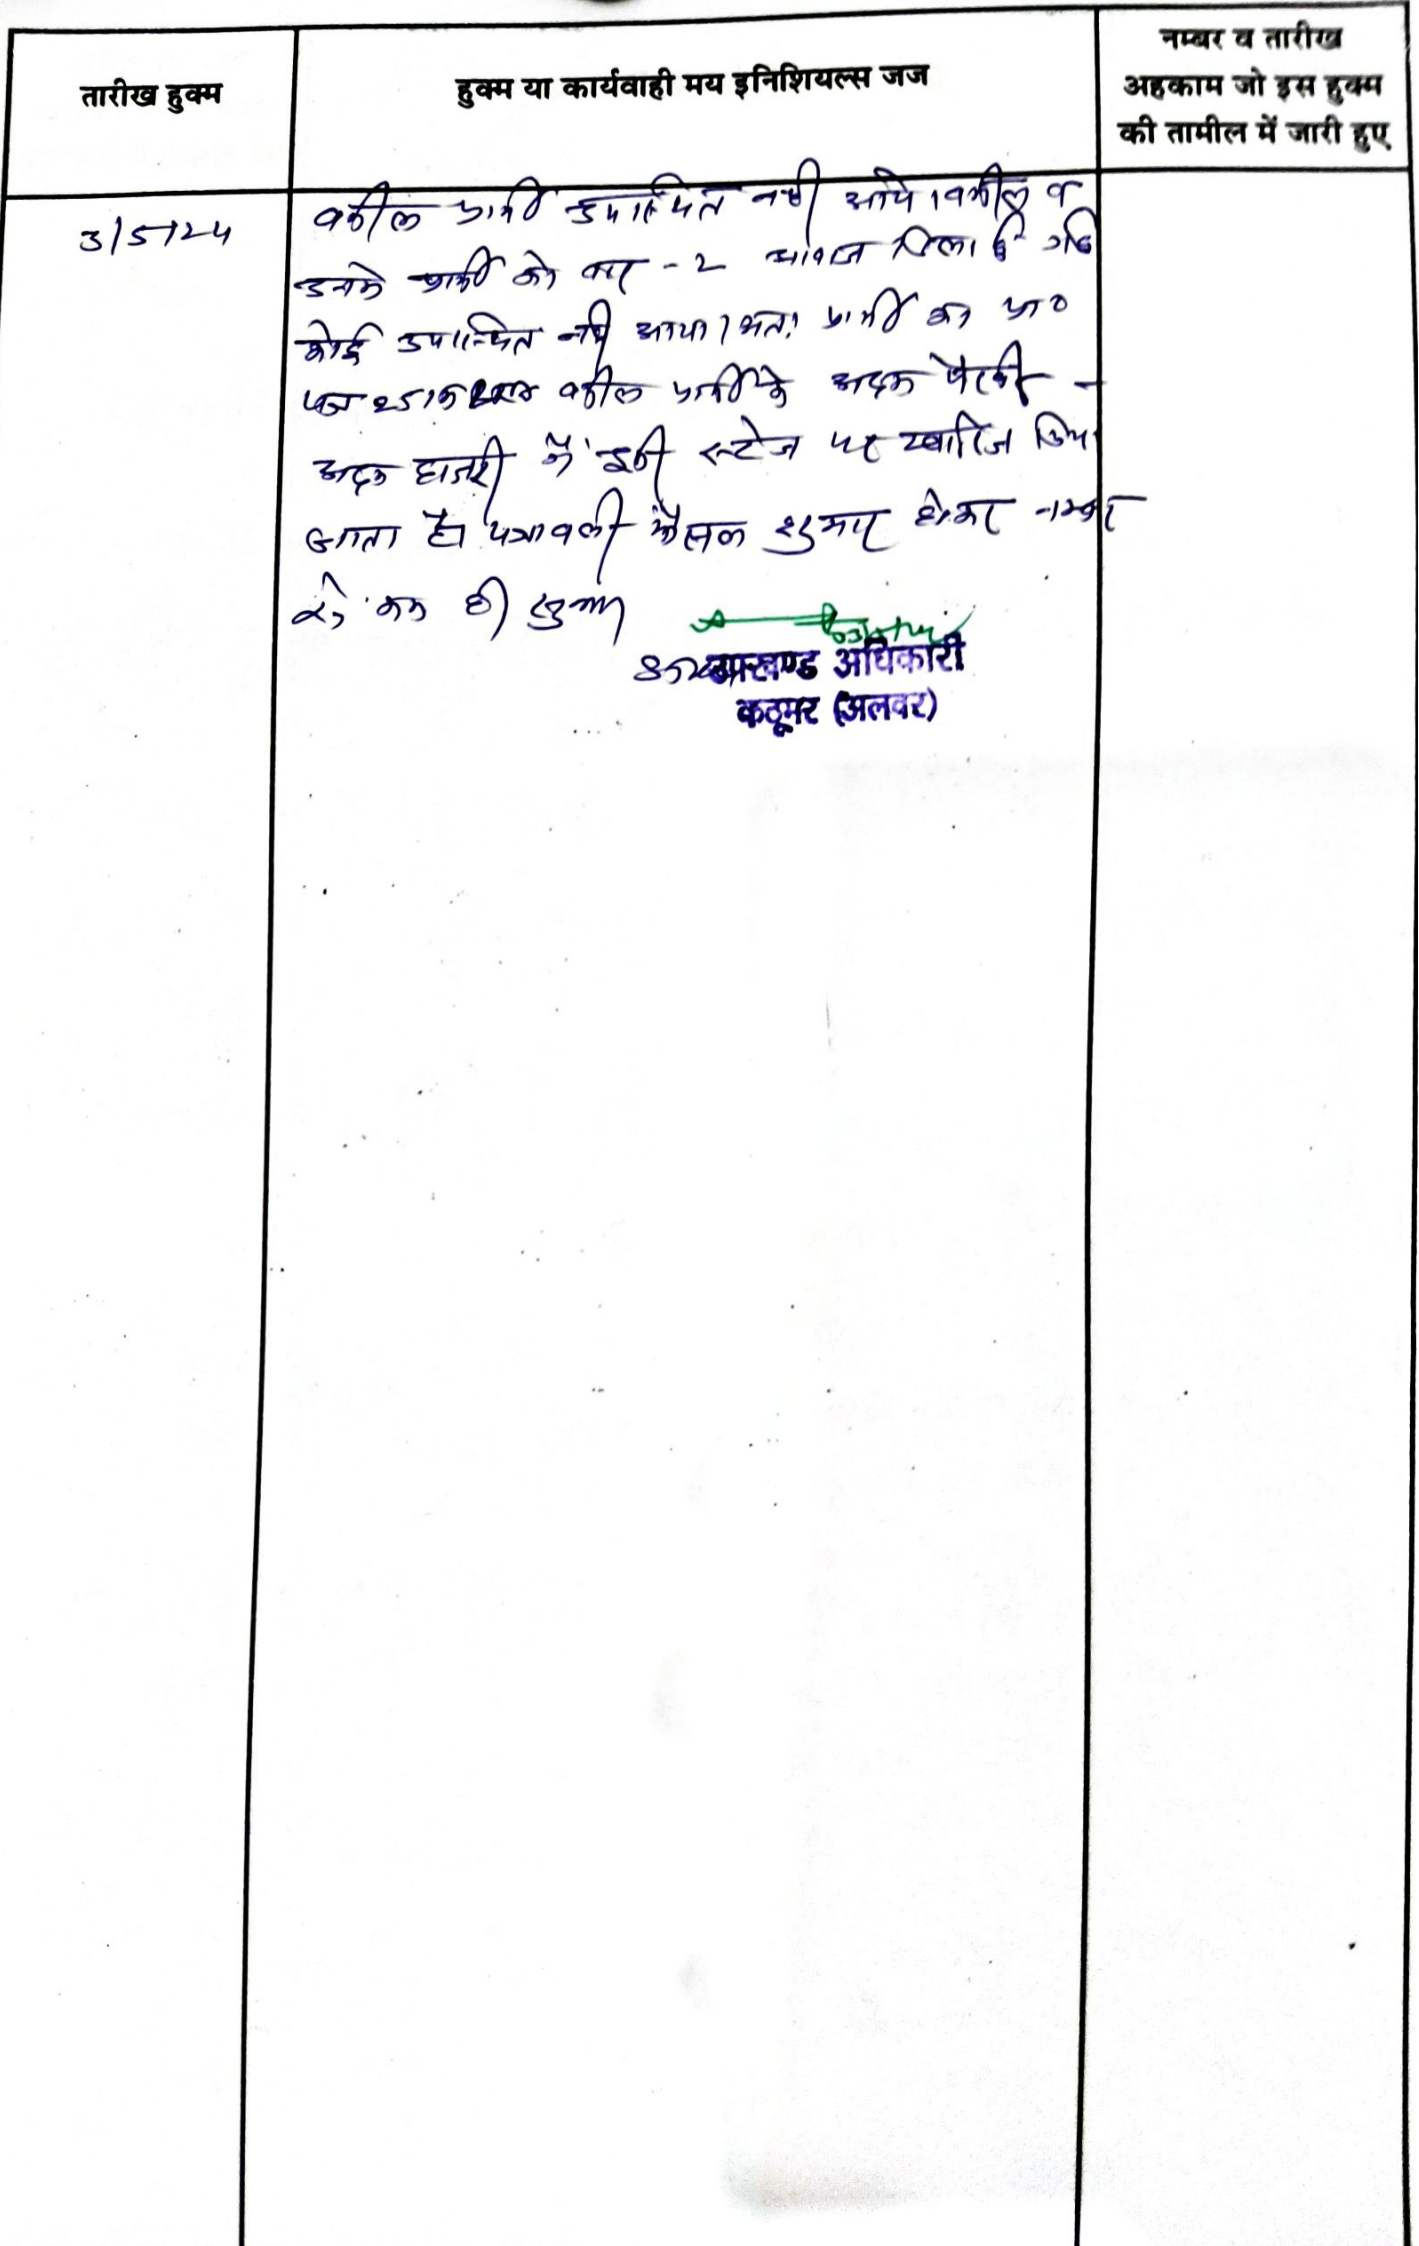 तारीख हुक्म
हुक्म या कार्यवाही मय इनिशियल्स जज
नम्बर व तारीख
अहकाम जो इस हुक्म
की तामील में जारी हुए
3/5/24
वकील प्रार्थी उपस्थित नही आये । वकील व
उनके प्रार्थी को बार -2 आवाज दिलाई गई
कोई उपस्थित नही आया । अतः प्रार्थी का प्रा०
पत्र वकील प्रार्थी के अदम पैरवी -
अदम हाजरी में इसी स्टेज पर खारिज किया
जाता है। पत्रावली फैसल शुमार होकर नम्बर
से कम हो।
उपखण्ड अधिकारी
कठूमर (अलवर)